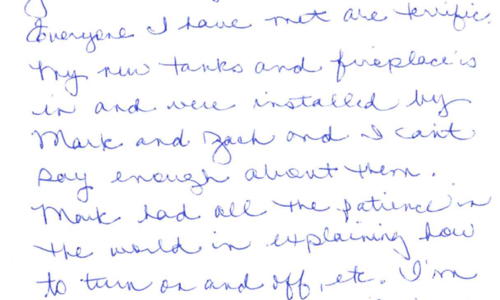 Everyone I have met are terrific.
My new tanks and fireplace is
in and were installed by
Mark and Zach and I can't
say enough about them.
Mark had all the patience in
the world in explaining how
to turn on and off, etc. I'm